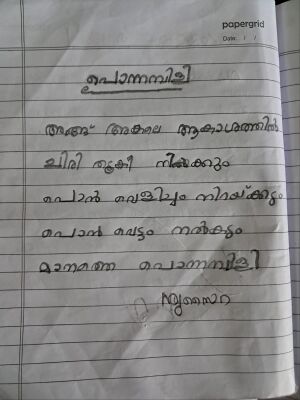 papergrid
Date: / /
പൊന്നമ്പിളി
അങ്ങ് അകലെ ആകാശത്തിൽ
ചിരി തൂകി നിൽക്കും
പൊൻ വെളിച്ചം നിറയ്ക്കും
പൊൻ വെട്ടം നൽകും
മാനത്തെ പൊന്നമ്പിളി